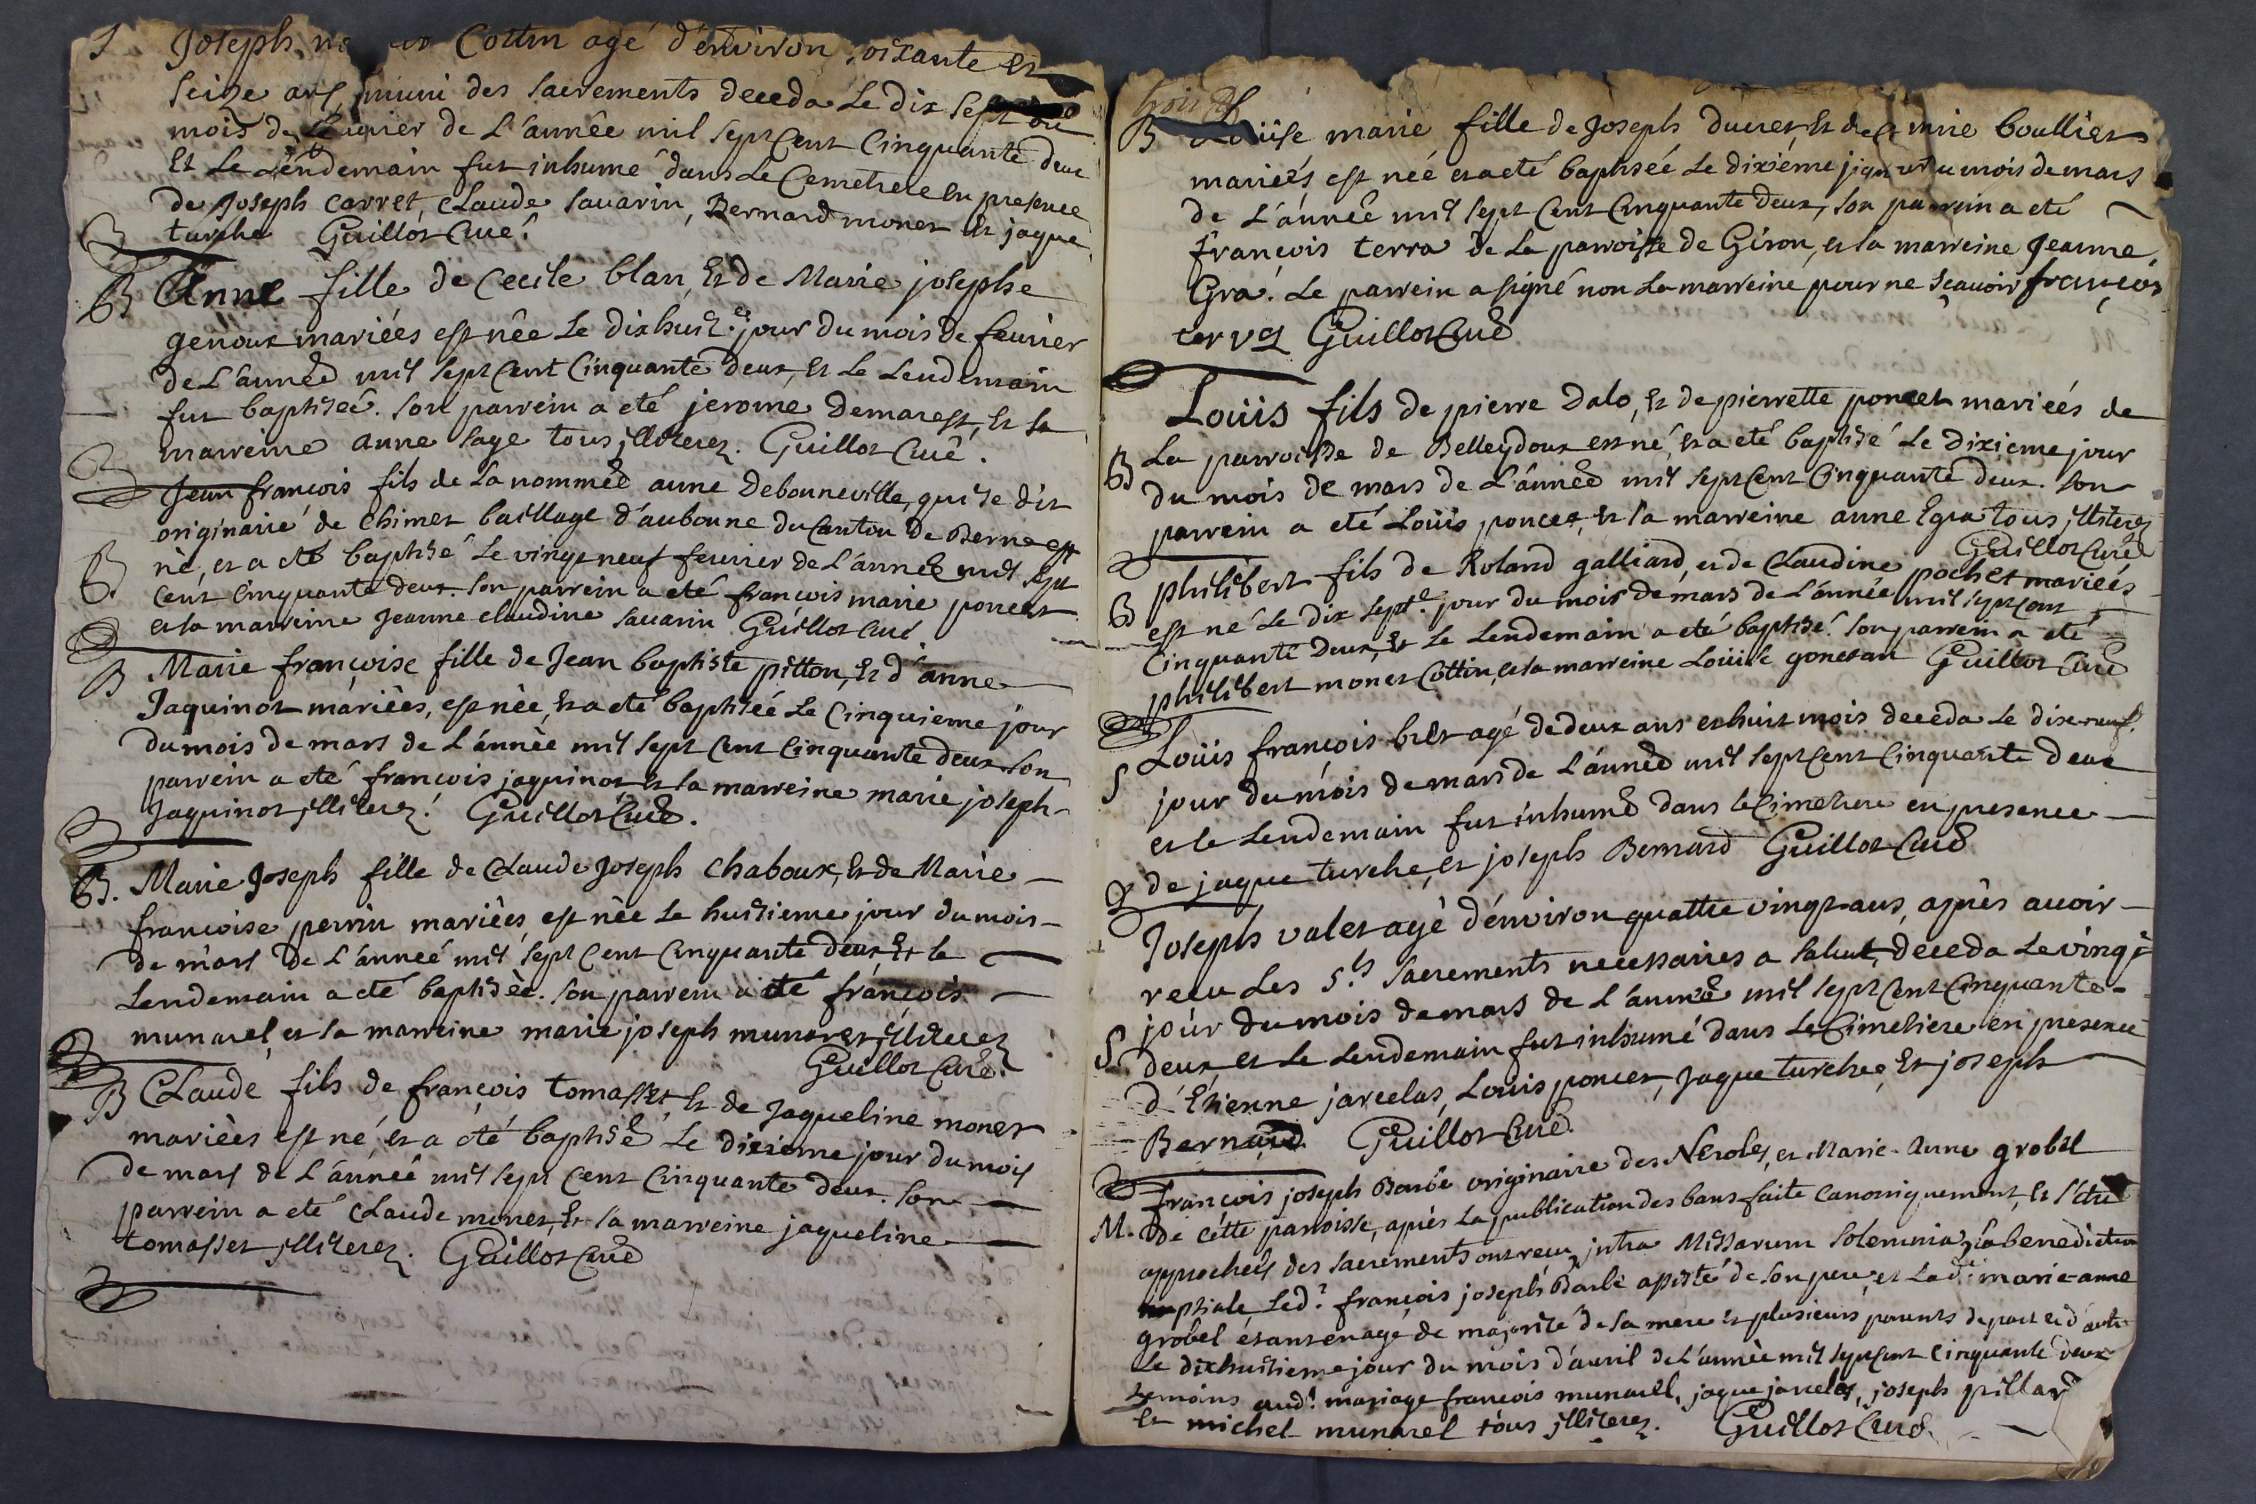 S Joseph Cottin agé d'environ soixante et
seize ans, muni des sacrements deceda le dix sept du
mois de feuvrier de L'année mil sept Cent Cinquante deux
Et Le Léndemain fut inhumé dans Le Cemetiere en presence
de Joseph carret, Claude Sauarin, Bernard monet et jaque
turche Guillot Curé.
B Anne fille de Cecile blan, Et de Marie josephe
genoux mariées est née Le dixhuit.e jour du mois de feurier
de L'année mil sept Cent Cinquante deux, Et Le Lendemain
fut baptiseé. son parrein a eté jerome demarest, Et sa
marreine anne sage tous jlliterez. Guillot Curé.
Jean françois fils de La nommée anne Debonneville, qui se dit
originaire de Chimet baillage d'aubonne du Canton de Berne est
B né, et a eté baptisé Le vingt neuf feurier de L'année mil sept
cent Cinquante deux. son parrein a eté françois marie poncet
et sa marreine Jeanne claudine sauarin Guillot Curé
B Marie françoise fille de Jean baptiste pitton, Et d'anne
Jaquinot mariées, est née, et a eté baptiseé Le Cinquieme jour
du mois de mars de L'année mil sept Cent Cinquante deux. son
parrein a eté françois jaquinot et sa marreine marie joseph
Jaquinot jlliterez. Guillot Curé.
B. Marie Joseph fille de Claude Joseph Chaboux, Et de Marie
françoise perrin mariées, est née Le huitieme jour du mois
de mars de L'année mil sept Cent Cinquante deux Et le
Lendemain a eté baptisée. son parrein a eté françois
munarel, et sa marreine marie joseph munaret jlliterez
Guillot Curé.
B Claude fils de françois tomasset, Et de Jaqueline monet
mariées est né et a eté baptisé Le dixieme jour du mois
de mars de L'année mil sept Cent Cinquante deux. son
parrein a eté Claude monet, Et sa marreine jaqueline
tomasset jlliterez. Guillot Curé
B Loüise marie fille de Joseph ducret, Et de boullier
mariées est née et a eté baptisée Le dixiéme jour du mois de mars
de L'année mil sept Cent Cinquante deux, son parrein a eté
françois terra de La parroisse de Giron, et sa marreine Jeanne
Gra. Le parrein a signé non La marreine pour ne sçauoir françois
Guillot Curé
Loüis fils de pierre Dalo, Et de pierrette poncet mariées de
B La parroisse de Belleydoux est né, Et a eté baptisé Le dixieme jour
du mois de mars de L'année mil sept Cent Cinquante deux. son
parrein a eté Loüis poncet, Et sa marreine anne Egra tous jlliterez
Guillot Curé
philibert fils de Roland galliard, et de Claudine pochet mariées
B est né Le dix sept.e jour du mois de mars de L'année mil sept cent
Cinquante Deux, Et Le Lendemain a eté baptisé. son parrein a eté
philibert monet Cottin, et sa marreine Loüise gonetan Guillot Curé
Loüis françois bret agé de deux ans et huit mois deceda Le dix neuf.
S jour du mois de mars de L'année mil sept Cent Cinquante deux
et le Lendemain fut inhumé dans le Cimetiere en presence
de jaque turche, et joseph Bernard Guillot Curé
Joseph valet agé d'environ quattre vingt ans, aprês auoir
receu Les S.ts sacrements necessaires a salut, deceda Le vingt
jour du mois de mars de L'année mil sept Cent Cinquante
S. deux, et Le Lendemain fut inhumé dans Le Cimetiere en presence
d'Etienne jarcelas, Loüis poncet, jaque turche, Et joseph
Bernard. Guillot Curé.
françois joseph Barbe originaire des Neroles, et Marie-Anne grobel
M. De cette parroisse, aprés La publication des bans faite canoniquement, Et s'etre
approcheés des sacrements ont receu, jntra Missarum solemnia, La benediction
nuptiale Led.t françois joseph Barbe assisté de son pere, et Lad.te marie-anne
grobel étant en age de majorité de sa mere et plusieurs parents de part et d'autre
Le dixhuitieme jour du mois d'auril de L'année mil sept Cent Cinquante deux
temoins aud.t mariage françois munarel, jaque jarcelas, joseph pillard
Et michel munarel tous jlliterez. Guillot Curé.